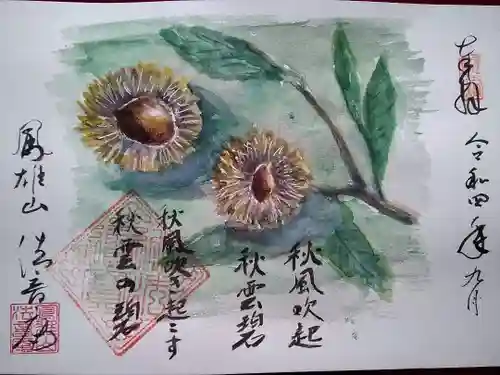 奉拝
令和四年九月
秋風吹起
秋雲碧
秋風吹き起こす
秋雲の碧
鳳雄山